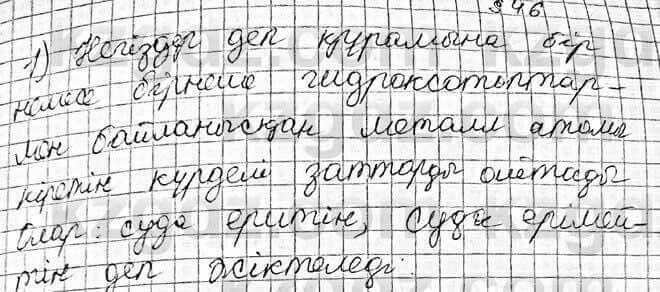 § 46
1) Негіздер деп құрамына бір
немесе бірнеше гидроксотоптар-
мен байланысқан металл атомы
кіретін күрделі заттарды айтады
Олар: суда еритін, суда ерімей-
тін деп жіктеледі.